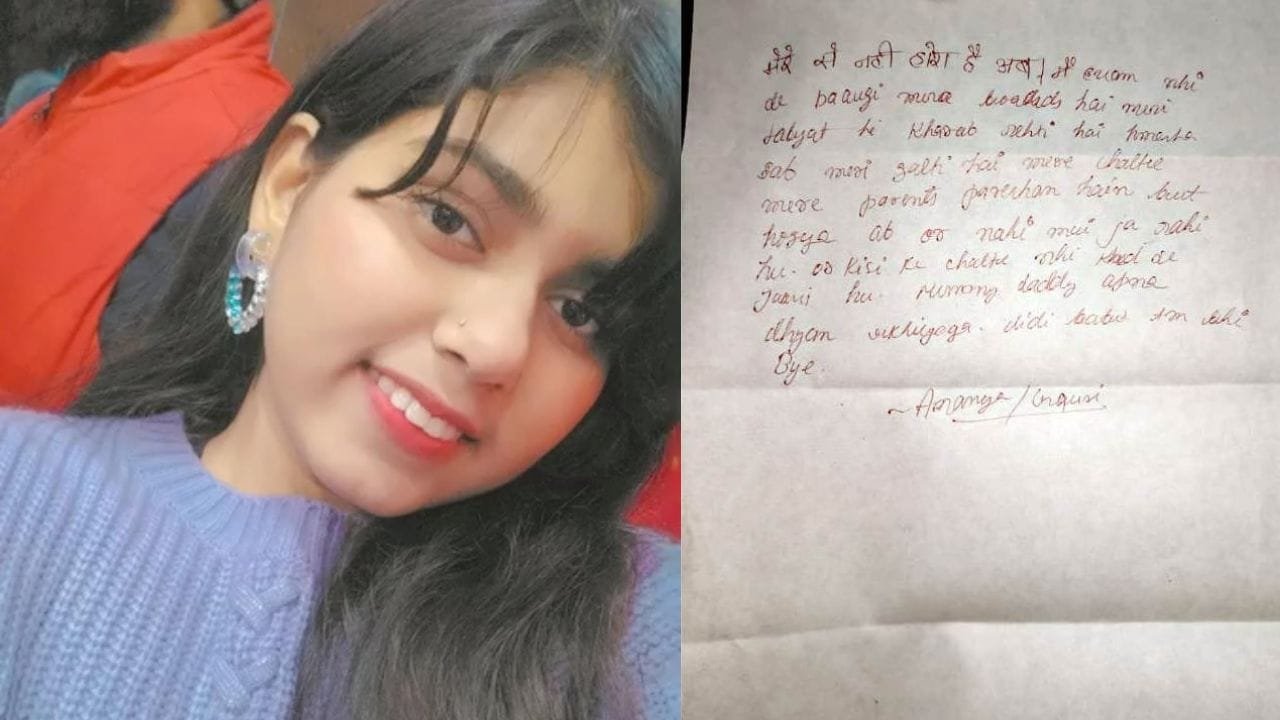 मेरे से नही होरा है अब। मैं exam nhi
de paaugi mera boards hai meri
tabyat hi kharab rehti hai hmesha
sab meri galti hai mere chalte
mere parents pareshan hain but
hogya ab or nahi mei ja rahi
hu. or kisi ke chalte nhi khud se
jaari hu. mummy daddy apna
dhyan rakhiyega. didi babu tm bhi
Bye.
~ Ananya /